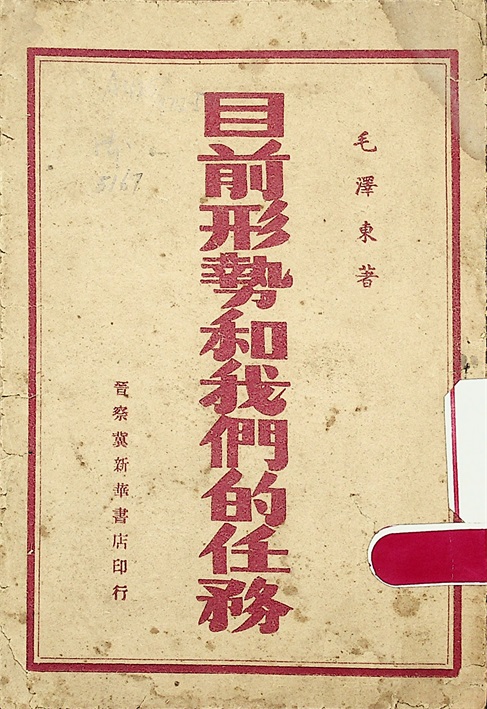 毛澤東著
目前形勢和我們的任務
晉察冀新華書店印行
5167